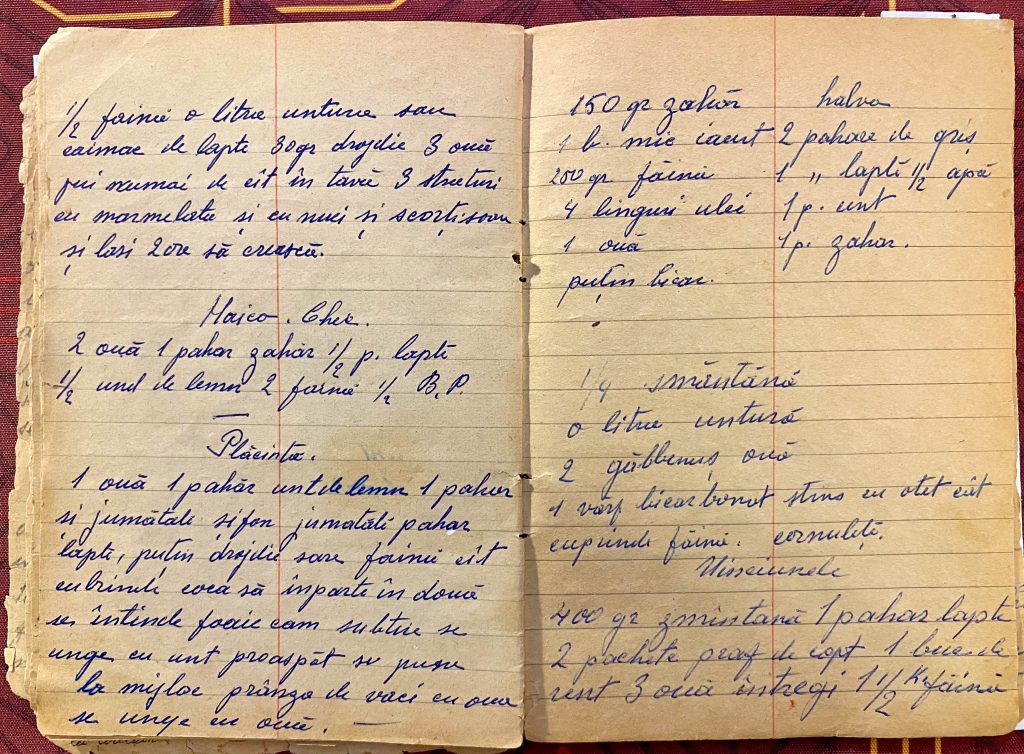 1/2 făină o litra untura sau
caimac de lapte 30gr drojdie 3 ouă
pui numai de cît în tavă 3 straturi
cu marmelata și cu nuci și scorțisoara
și lasi 2 ore să crească.
Chec.
2 ouă 1 pahar zahăr 1/2 p. lapte
1/2 unt de lemn 2 făină 1/2 B.P.
Plăcinta.
1 ouă 1 pahăr untdelemn 1 pahar
și jumătate sifon jumatăti pahar
lapte, puțin drojdie sare făină cît
cubrinde coca să înparte în două
se întinde foaie cam subtire se
unge cu unt proaspăt se pune
la mijloc prânza de vaci cu oua
se unge cu ouă.
150 gr zahăr
1 b. mic iaurt
200 gr făină
4 linguri ulei
1 ouă
puțin bicar.
halva
2 pahare de griș
1 „ lapte 1/2 apă
1 p. unt
1 p. zahar.
1/4 smăntănă
o litra untură
2 gălbbenuș ouă
1 varf bicarbonat stins cu otet cât
cuprinde făină. cornulețe.
400 gr zmîntană 1 pahar lapte
2 pachete praf de copt 1 buc. de
unt 3 ouă întregi 1 1/2 K. făină